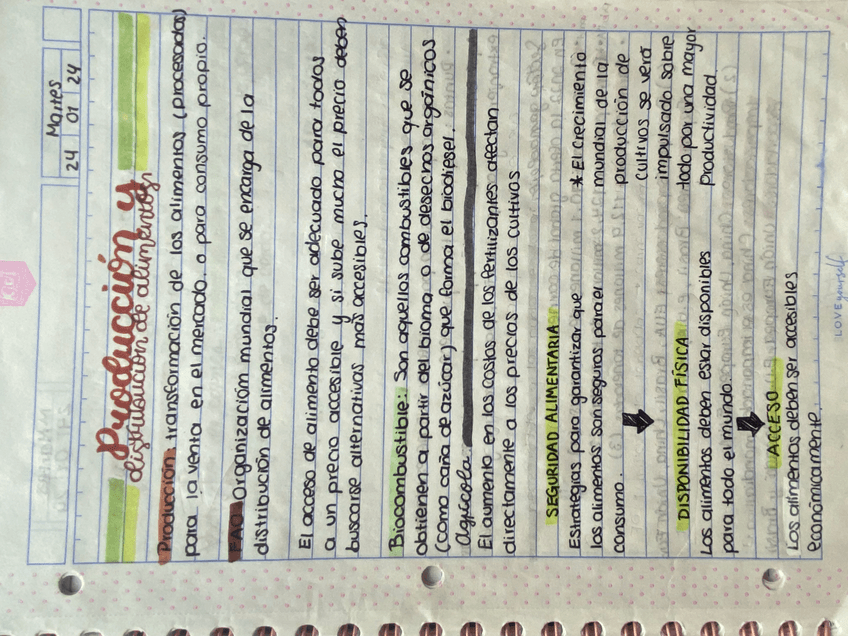 Martes
24 01 24
Producción y
distribución de alimentos.
Producción: transformación de los alimentos (procesados)
para la venta en el mercado o para consumo propio.
FAO: Organización mundial que se encarga de la
distribución de alimentos.
El acceso de alimento debe ser adecuado para todos
a un precio accesible y si sube mucho el precio deben
buscarse alternativas más accesibles.
Biocombustible: Son aquellos combustibles que se
obtienen a partir del bioma o de desechos orgánicos
(como caña de azúcar) que forma el biodiesel.
Agrícola
El aumento en los costos de los fertilizantes afectan
directamente a los precios de los cultivos
SEGURIDAD ALIMENTARIA
Estrategias para garantizar que
los alimentos son seguros para el
consumo.
DISPONIBILIDAD FÍSICA
Los alimentos deben estar disponibles
para todo el mundo.
ACCESO
Los alimentos deben ser accesibles
económicamente.
* El crecimiento
mundial de la
producción de
cultivos se verá
impulsado sobre
todo por una mayor
Productividad.
LOVE yourself